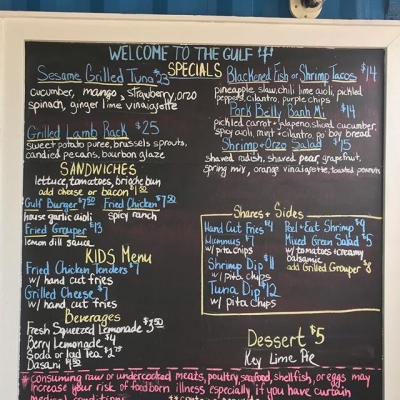 WELCOME TO THE GULF
SPECIALS
Sesame Grilled Tuna $23
cucumber, mango, strawberry, orzo
spinach, ginger lime vinaigrette
Grilled Lamb Rack $25
sweet potato puree, brussels sprouts,
candied pecans, bourbon glaze
Blackened Fish or Shrimp Tacos $14
pineapple slaw, chili lime aioli, pickled
peppers, cilantro, purple chips
Pork Belly Banh Mi $14
pickled carrot + jalapeno, sliced cucumber,
spicy aioli, mint + cilantro, po' boy bread
Shrimp + Orzo Salad $15
shaved radish, shaved pear, grapefruit,
spring mix, orange vinaigrette, toasted peanuts
SANDWICHES
lettuce, tomatoes, brioche bun
add cheese or bacon $1.50
Gulf Burger $7.50
house garlic aioli
Fried Chicken $7.50
spicy ranch
Fried Grouper $13
lemon dill sauce
KIDS Menu
Fried Chicken tenders $7
w/ hand cut fries
Grilled Cheese $7
w/ hand cut fries
Beverages
Fresh Squeezed Lemonade $3.50
Berry Lemonade $4
Soda or Iced Tea
Dasani
Shares + Sides
Hand Cut Fries $4
Hummus $7
w/ pita chips
Shrimp Dip $11
w/ pita chips
Tuna Dip $12
w/ pita chips
Peel + Eat Shrimp $9
Mixed Green Salad $5
w/ tomatoes + creamy
balsamic
add Grilled Grouper $8
Dessert $5
Key Lime Pie
* Consuming raw or undercooked meats, poultry, seafood, shellfish, or eggs may
increase your risk of foodborn illness especially if you have curtain
medical conditions